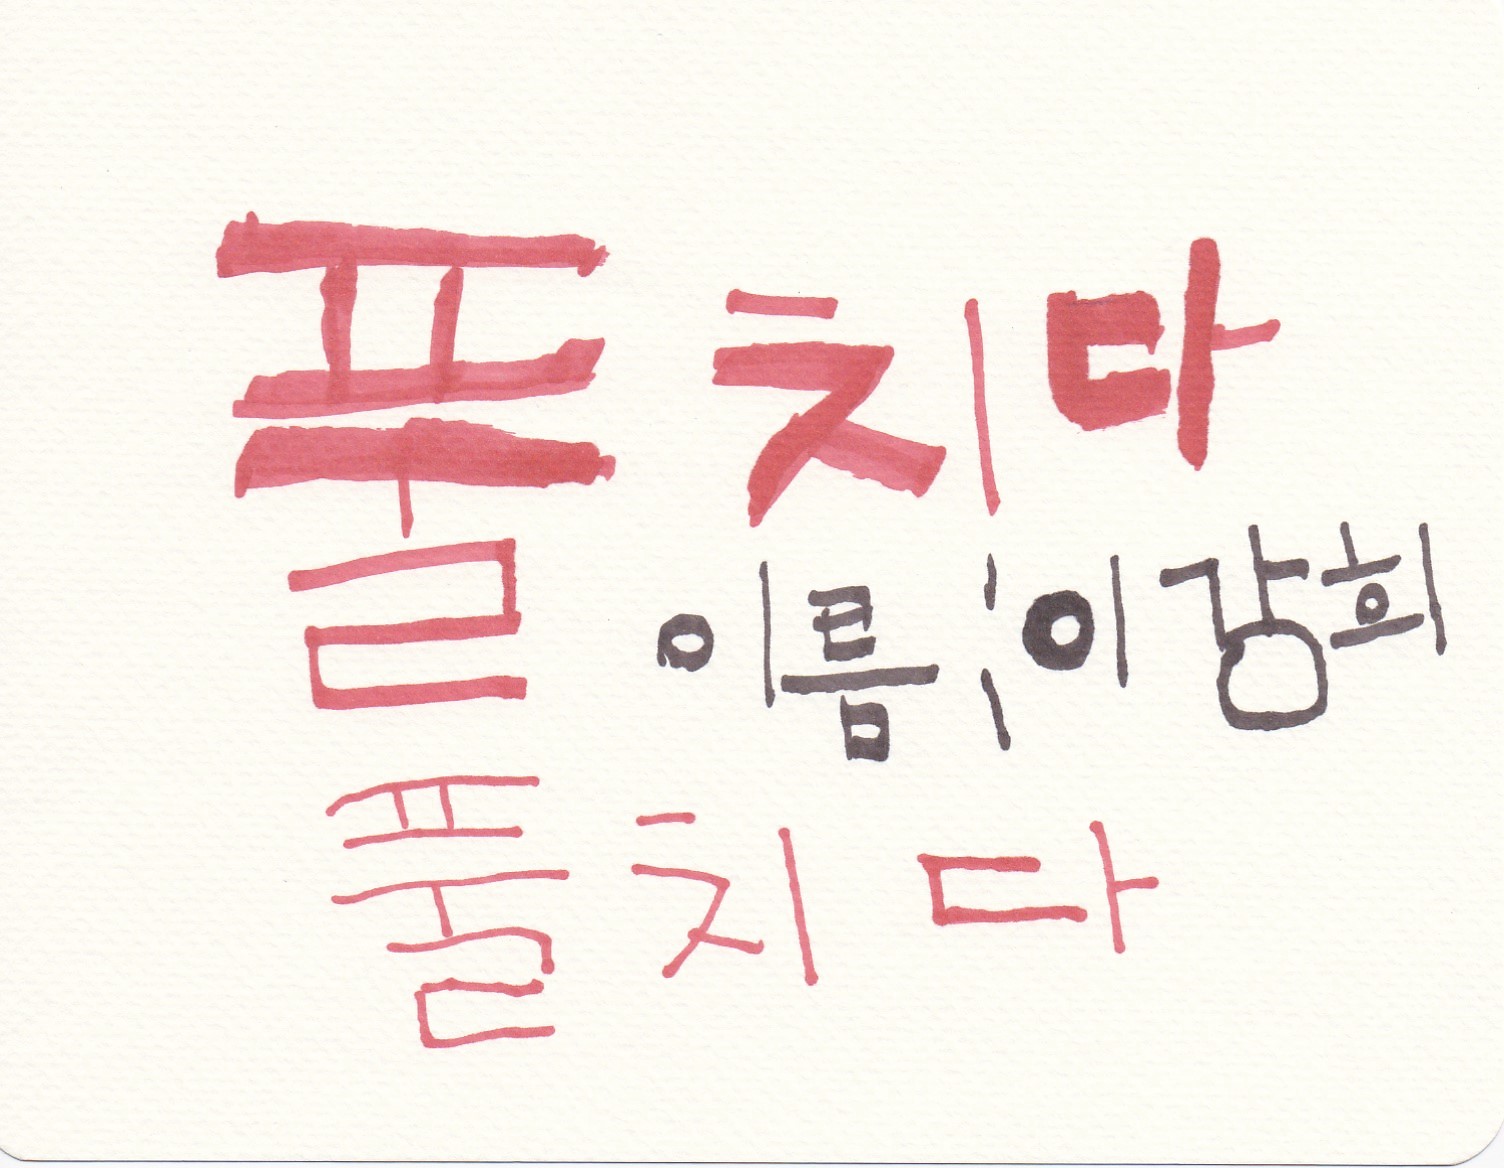 풀치다
이름:이강희
풀치다